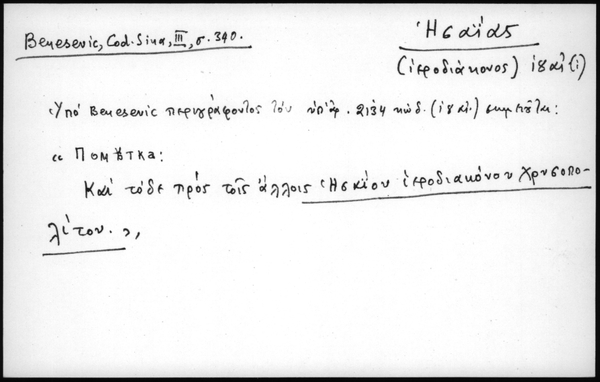 Benesevic, Cod. Sina, III, σ. 340.
Ἡσαΐας
(ἱεροδιάκονος) ιϛ αἰ (;)
Ὑπό Benesevic περιγράφοντος τόν ὑπ' ἀρ. 2134 κώδ. (ις αἰ.) σημειοῦται:
« Помѣтка:
Καί τόδε πρός τοῖς ἄλλοις Ἡσαΐου ἱεροδιακόνου Χρυσοπο-
λίτου. »,